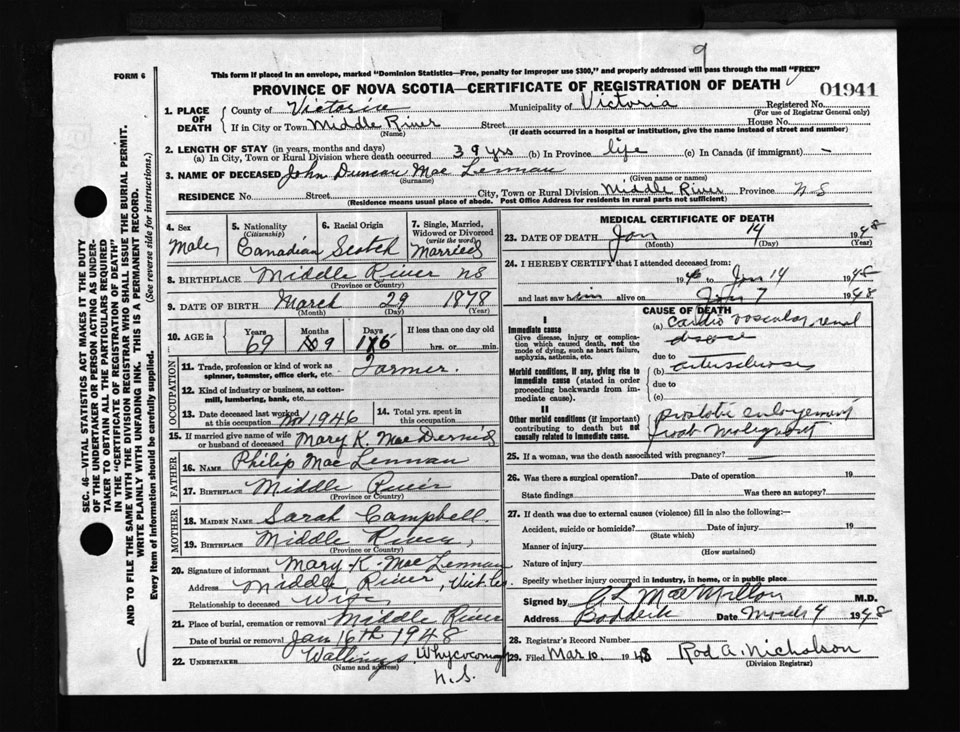 9
FORM 6
This form if placed in an envelope, marked "Dominion Statistics—Free, penalty for improper use $300," and properly addressed will pass through the mail "FREE"
PROVINCE OF NOVA SCOTIA—CERTIFICATE OF REGISTRATION OF DEATH
01941
1. PLACE OF DEATH
County of Victoria Municipality of Victoria Registered No.
(For use of Registrar General only)
If in City or Town Middle River Street House No.
(Name) (If death occurred in a hospital or institution, give the name instead of street and number)
2. LENGTH OF STAY (in years, months and days)
(a) In City, Town or Rural Division where death occurred 39 yrs (b) In Province life (c) In Canada (if immigrant) —
3. NAME OF DECEASED John Duncan Mac Lennan
(Surname) (Given name or names)
RESIDENCE No. Street City, Town or Rural Division Middle River Province N S
(Residence means usual place of abode. Post Office Address for residents in rural parts not sufficient)
SEC. 46—VITAL STATISTICS ACT MAKES IT THE DUTY
OF THE UNDERTAKER OR PERSON ACTING AS UNDER-
TAKER TO OBTAIN ALL THE PARTICULARS REQUIRED
IN THE "CERTIFICATE OF REGISTRATION OF DEATH"
AND TO FILE THE SAME WITH THE DIVISION REGISTRAR WHO SHALL ISSUE THE BURIAL PERMIT.
WRITE PLAINLY WITH UNFADING INK. THIS IS A PERMANENT RECORD.
Every item of information should be carefully supplied. (See reverse side for instructions.)
4. Sex
Male
5. Nationality
(Citizenship)
Canadian
6. Racial Origin
Scotch
7. Single, Married, Widowed or Divorced
(write the word)
Married
8. BIRTHPLACE Middle River NS
(Province or Country)
9. DATE OF BIRTH March 29 1878
(Month) (Day) (Year)
10. AGE in
Years Months Days If less than one day old
69 9 16 hrs. or min.
OCCUPATION
11. Trade, profession or kind of work as
spinner, teamster, office clerk, etc. Farmer.
12. Kind of industry or business, as cotton-
mill, lumbering, bank, etc.
13. Date deceased last worked
at this occupation Nov 1946
14. Total yrs. spent in
this occupation
15. If married give name of wife
or husband of deceased Mary K. MacDermid
FATHER
16. NAME Philip Mac Lennan
17. BIRTHPLACE Middle River
(Province or Country)
MOTHER
18. MAIDEN NAME Sarah Campbell.
19. BIRTHPLACE Middle River,
(Province or Country)
20. Signature of informant Mary K. Mac Lennan
Address Middle River, Vict Co.
Relationship to deceased Wife
21. Place of burial, cremation or removal Middle River
Date of burial or removal Jan 16th 1948
22. UNDERTAKER Whycocomagh
(Name and address)
N.S.
MEDICAL CERTIFICATE OF DEATH
23. DATE OF DEATH Jan 14 1948
(Month) (Day) (Year)
24. I HEREBY CERTIFY that I attended deceased from:
1946 to Jan 14 1948
and last saw him alive on Jan 7 1948
CAUSE OF DEATH
I
Immediate cause
Give disease, injury or complica-
tion which caused death, not the
mode of dying, such as heart failure,
asphyxia, asthenia, etc.
(a) cardio vascular renal
disease
due to
Morbid conditions, if any, giving rise to
immediate cause (stated in order
proceeding backwards from im-
mediate cause).
(b) arteriosclerosis
due to
(c)
II
Other morbid conditions (if important)
contributing to death but not
causally related to immediate cause.
prostatic enlargement
prob malignant
25. If a woman, was the death associated with pregnancy?
26. Was there a surgical operation? Date of operation 19
State findings Was there an autopsy?
27. If death was due to external causes (violence) fill in also the following:—
Accident, suicide or homicide? Date of injury 19
(State which)
Manner of injury
(How sustained)
Nature of injury
Specify whether injury occurred in industry, in home, or in public place
Signed by C L MacMillan M.D.
Address Baddeck Date March 4 1948
28. Registrar's Record Number
29. Filed Mar 10. 1948 Rod A. Nicholson
(Division Registrar)